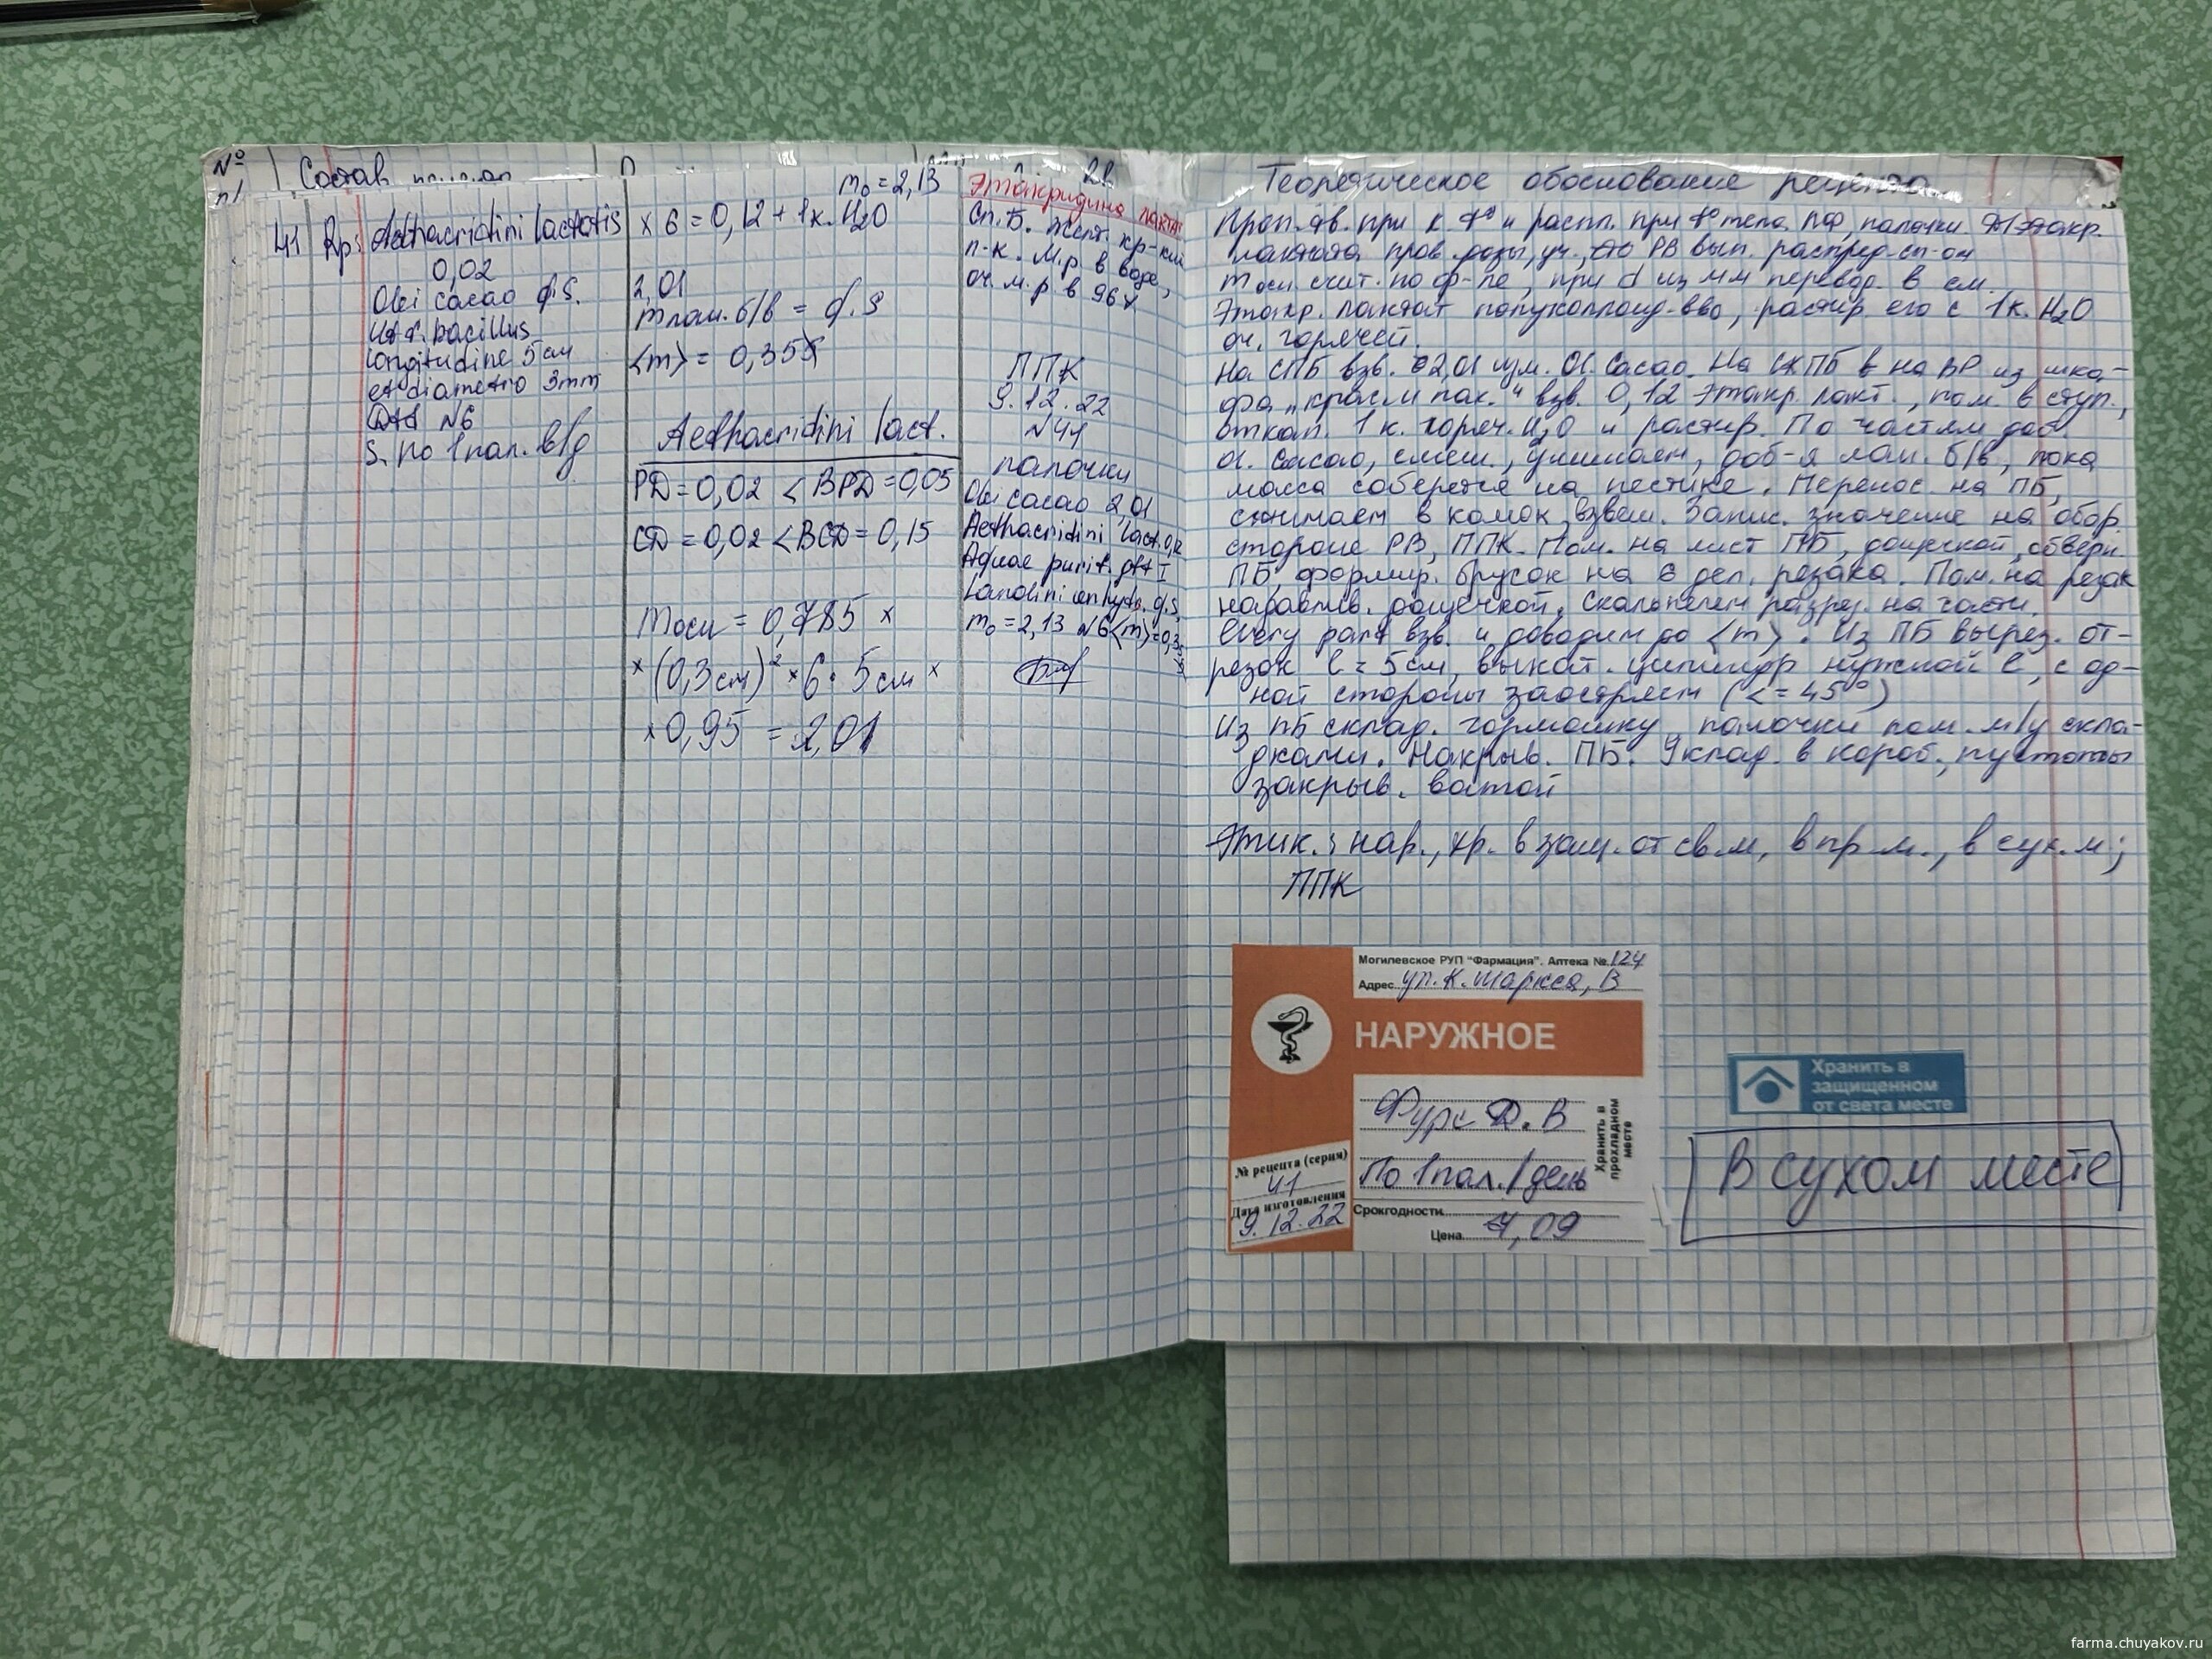 №
п/
Состав
41 Rp: Aethacridini lactatis
0,02
Olei cacao q.s.
Ut f. bacillus
longitudine 5 см
et diametro 3mm
Dtd N6
S. по 1 пал. в/д
m₀ = 2,13
x 6 = 0,12 + 1к. H₂O
2,01
m лан. б/в = q.s
<m> = 0,355
Aethacridini lact.
РД = 0,02 < ВРД = 0,05
СД = 0,02 < ВСД = 0,15
mосн = 0,785 x
x (0,3см)² x 6 · 5см x
x 0,95 = 2,01
Этакридина лактат
Сп. Б. Желт. кр-кий
п-к. М.р. в воде,
оч. м. р. в 96%
ППК
9.12.22
N41
палочки
Olei cacao 2,01
Aethacridini lact. 0,12
Aquae purif. gtt I
Lanolini anhydr. q.s.
m₀ = 2,13 N6 <m> = 0,355
Теоретическое обоснование рецепта
Проп. тв. при к. t° и распл. при t° тела ЛФ, палочки. Д/этакр.
лактата пров. дозы, уч., до РВ вып. распред. сп-ом
mосн счит. по ф-ле, при d из мм перевод. в см.
Этакр. лактат полуколлоид. в-во, растир. его с 1к. H₂O
оч. горячей.
На СПБ взв. 2,01 изм. Ol. Cacao. На ПБ в на ВР из шка-
фа "крас и пах." взв. 0,12 этакр. лакт., пом. в ступ.,
откап. 1 к. горяч. H₂O и растир. По частям доб.
ol. cacao, смеш., уминаем, доб-я лан. б/в, пока
масса соберется на пестике. Перенос. на ПБ,
сжимаем в комок, взвеш. Запис. значение на обор.
стороне РВ, ППК. Пом. на лист ПБ, дощечкой, обверн.
ПБ, формир. брусок на 6 дел. резака. Пом. на резак
надавлив. дощечкой. Скальпелем разрез. на части.
Every part взв. и доводим до <m>. Из ПБ вырез. от-
резок l = 5см, выкат. цилиндр нужной l, с од-
ной стороны заостряем (∠ = 45°)
Из ПБ склад. гармошку палочки пом. м/у скла-
дками. Накрыв. ПБ. Уклад. в короб., пустоты
закрыв. ватой
Этик.: нар., хр. в защ. от св. м, в пр. м., в сух. м;
ППК
Могилевское РУП "Фармация". Аптека № 124
Адрес ул. К. Маркса, В
НАРУЖНОЕ
Фурс Д. В
По 1 пал. / день
Хранить в прохладном месте
№ рецепта (серия)
41
Дата изготовления
9.12.22
Срок годности
Цена 7,09
Хранить в
защищенном
от света месте
В сухом месте
farma.chuyakov.ru